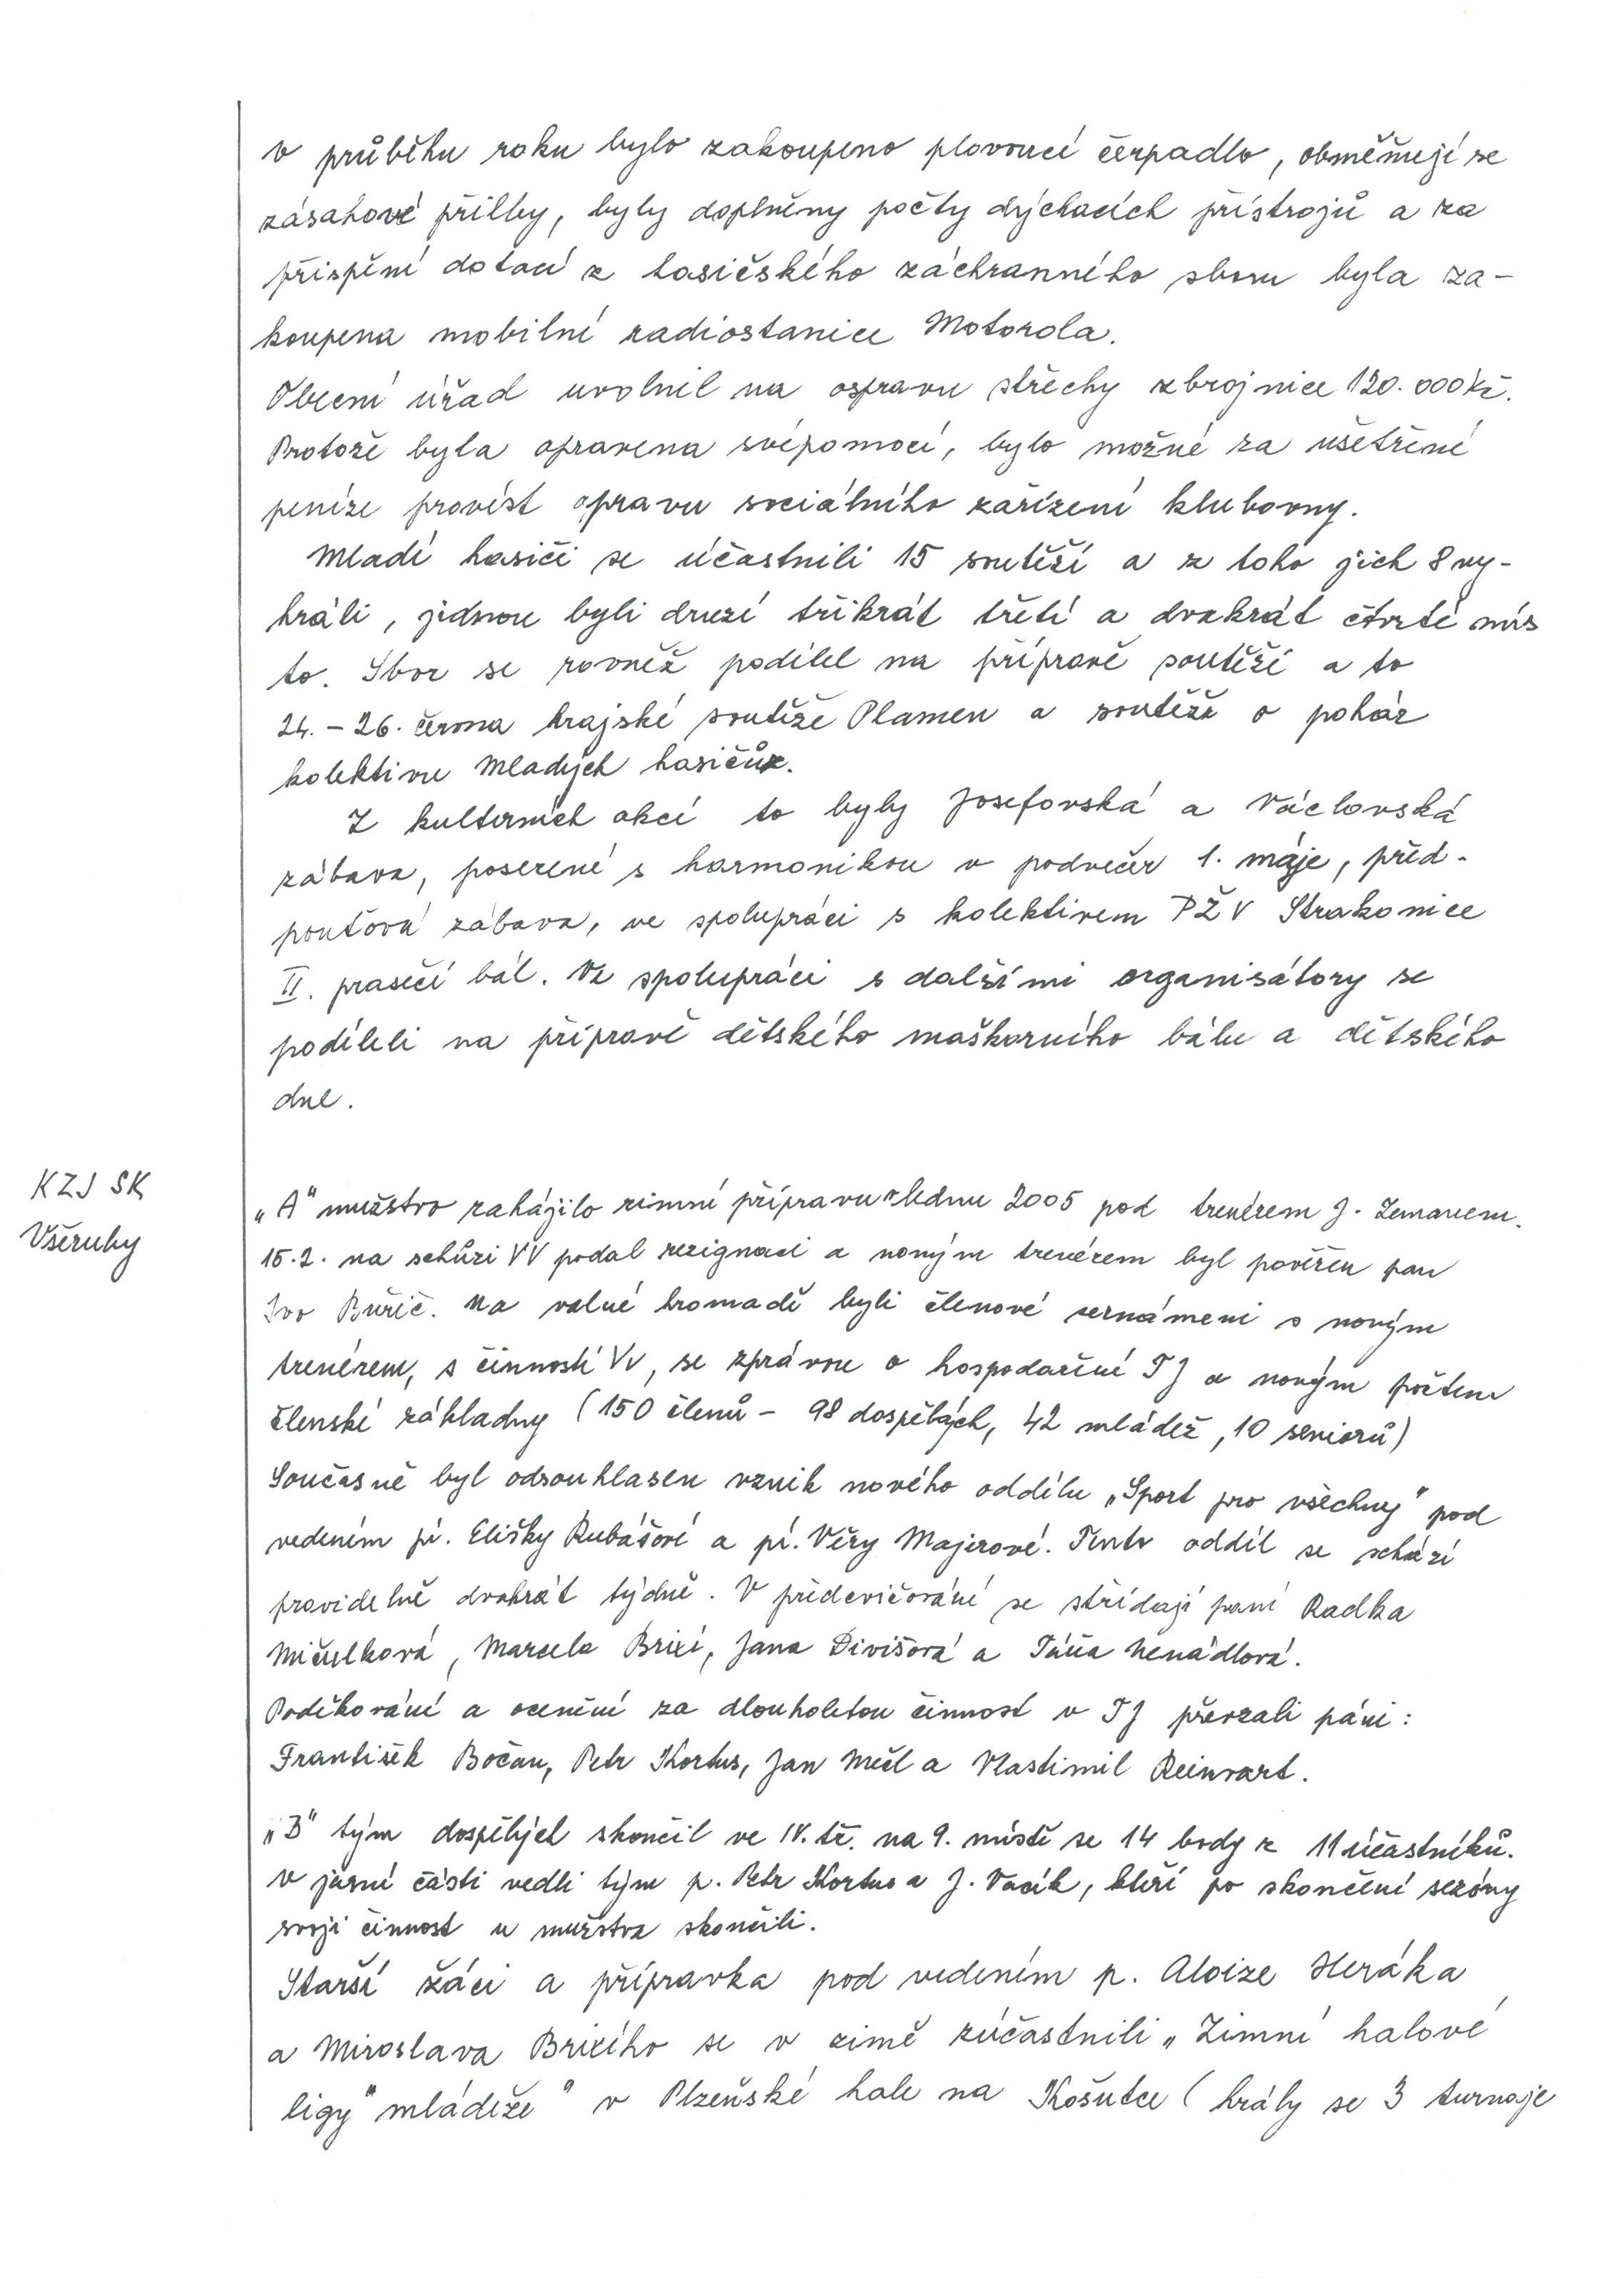 v průběhu roku bylo zakoupeno plovoucí čerpadlo, obměňují se
zásahové přilby, byly doplněny počty dýchacích přístrojů a za
přispění dotací z hasičského záchranného sboru byla za-
koupena mobilní radiostanice Motorola.
Obecní úřad uvolnil na ospravu střechy zbrojnice 120.000 Kč.
Protože byla opravena svépomocí, bylo možné za ušetřené
peníze provést opravu sociálního zařízení klubovny.
Mladí hasiči se účastnili 15 soutěží a z toho jich 8 vy-
hráli, jednou byli druzí třikrát třetí a dvakrát čtvrté mís
to. Sbor se rovněž podílel na přípravě soutěží a to
24. – 26. června krajské soutěže Plamen a soutěže o pohár
kolektivu Mladých hasičů.
Z kulturních akcí to byly Josefovská a Václavská
zábava, posezené s harmonikou v podvečer 1. máje, před-
pouťová zábava, ve spolupráci s kolektivem PŽV Strakonice
II. prasečí bál. Ve spolupráci s dalšími organisátory se
podíleli na přípravě dětského maškarního bálu a dětského
dne.
KZJ SK
Všeruby
„A" mužstvo zahájilo zimní přípravu v lednu 2005 pod trenérem J. Zemanem.
15.2. na schůzi VV podal rezignaci a novým trenérem byl pověřen pan
Ivo Buřič. Na valné hromadě byli členové seznámeni s novým
trenérem, s činností VV, se zprávou o hospodaření TJ a novým počtem
členské základny (150 členů – 98 dospělých, 42 mládež, 10 seniorů)
Současně byl odsouhlasen vznik nového oddílu „Sport pro všechny" pod
vedením pí. Elišky Rubášové a pí. Věry Majerové. Tento oddíl se schází
pravidelně dvakrát týdně. V předcvičování se střídají paní Radka
Mičulková, Marcela Brixí, Jana Divišová a Táňa Nenádlová.
Poděkování a ocenění za dlouholetou činnost v TJ převzali páni:
František Bočan, Petr Kortus, Jan Mečl a Vlastimil Reinvart.
„B" tým dospělých skončil ve IV. tř. na 9. místě se 14 body z 11 účastníků.
V jarní části vedli tým p. Petr Kortus a J. Vacík, kteří po skončení sezóny
svoji činnost u mužstva skončili.
Starší žáci a přípravka pod vedením p. Aloize Heráka
a Miroslava Brixího se v zimě zúčastnili „Zimní halové
ligy" mládeže" v Plzeňské hale na Košutce (hrály se 3 turnaje